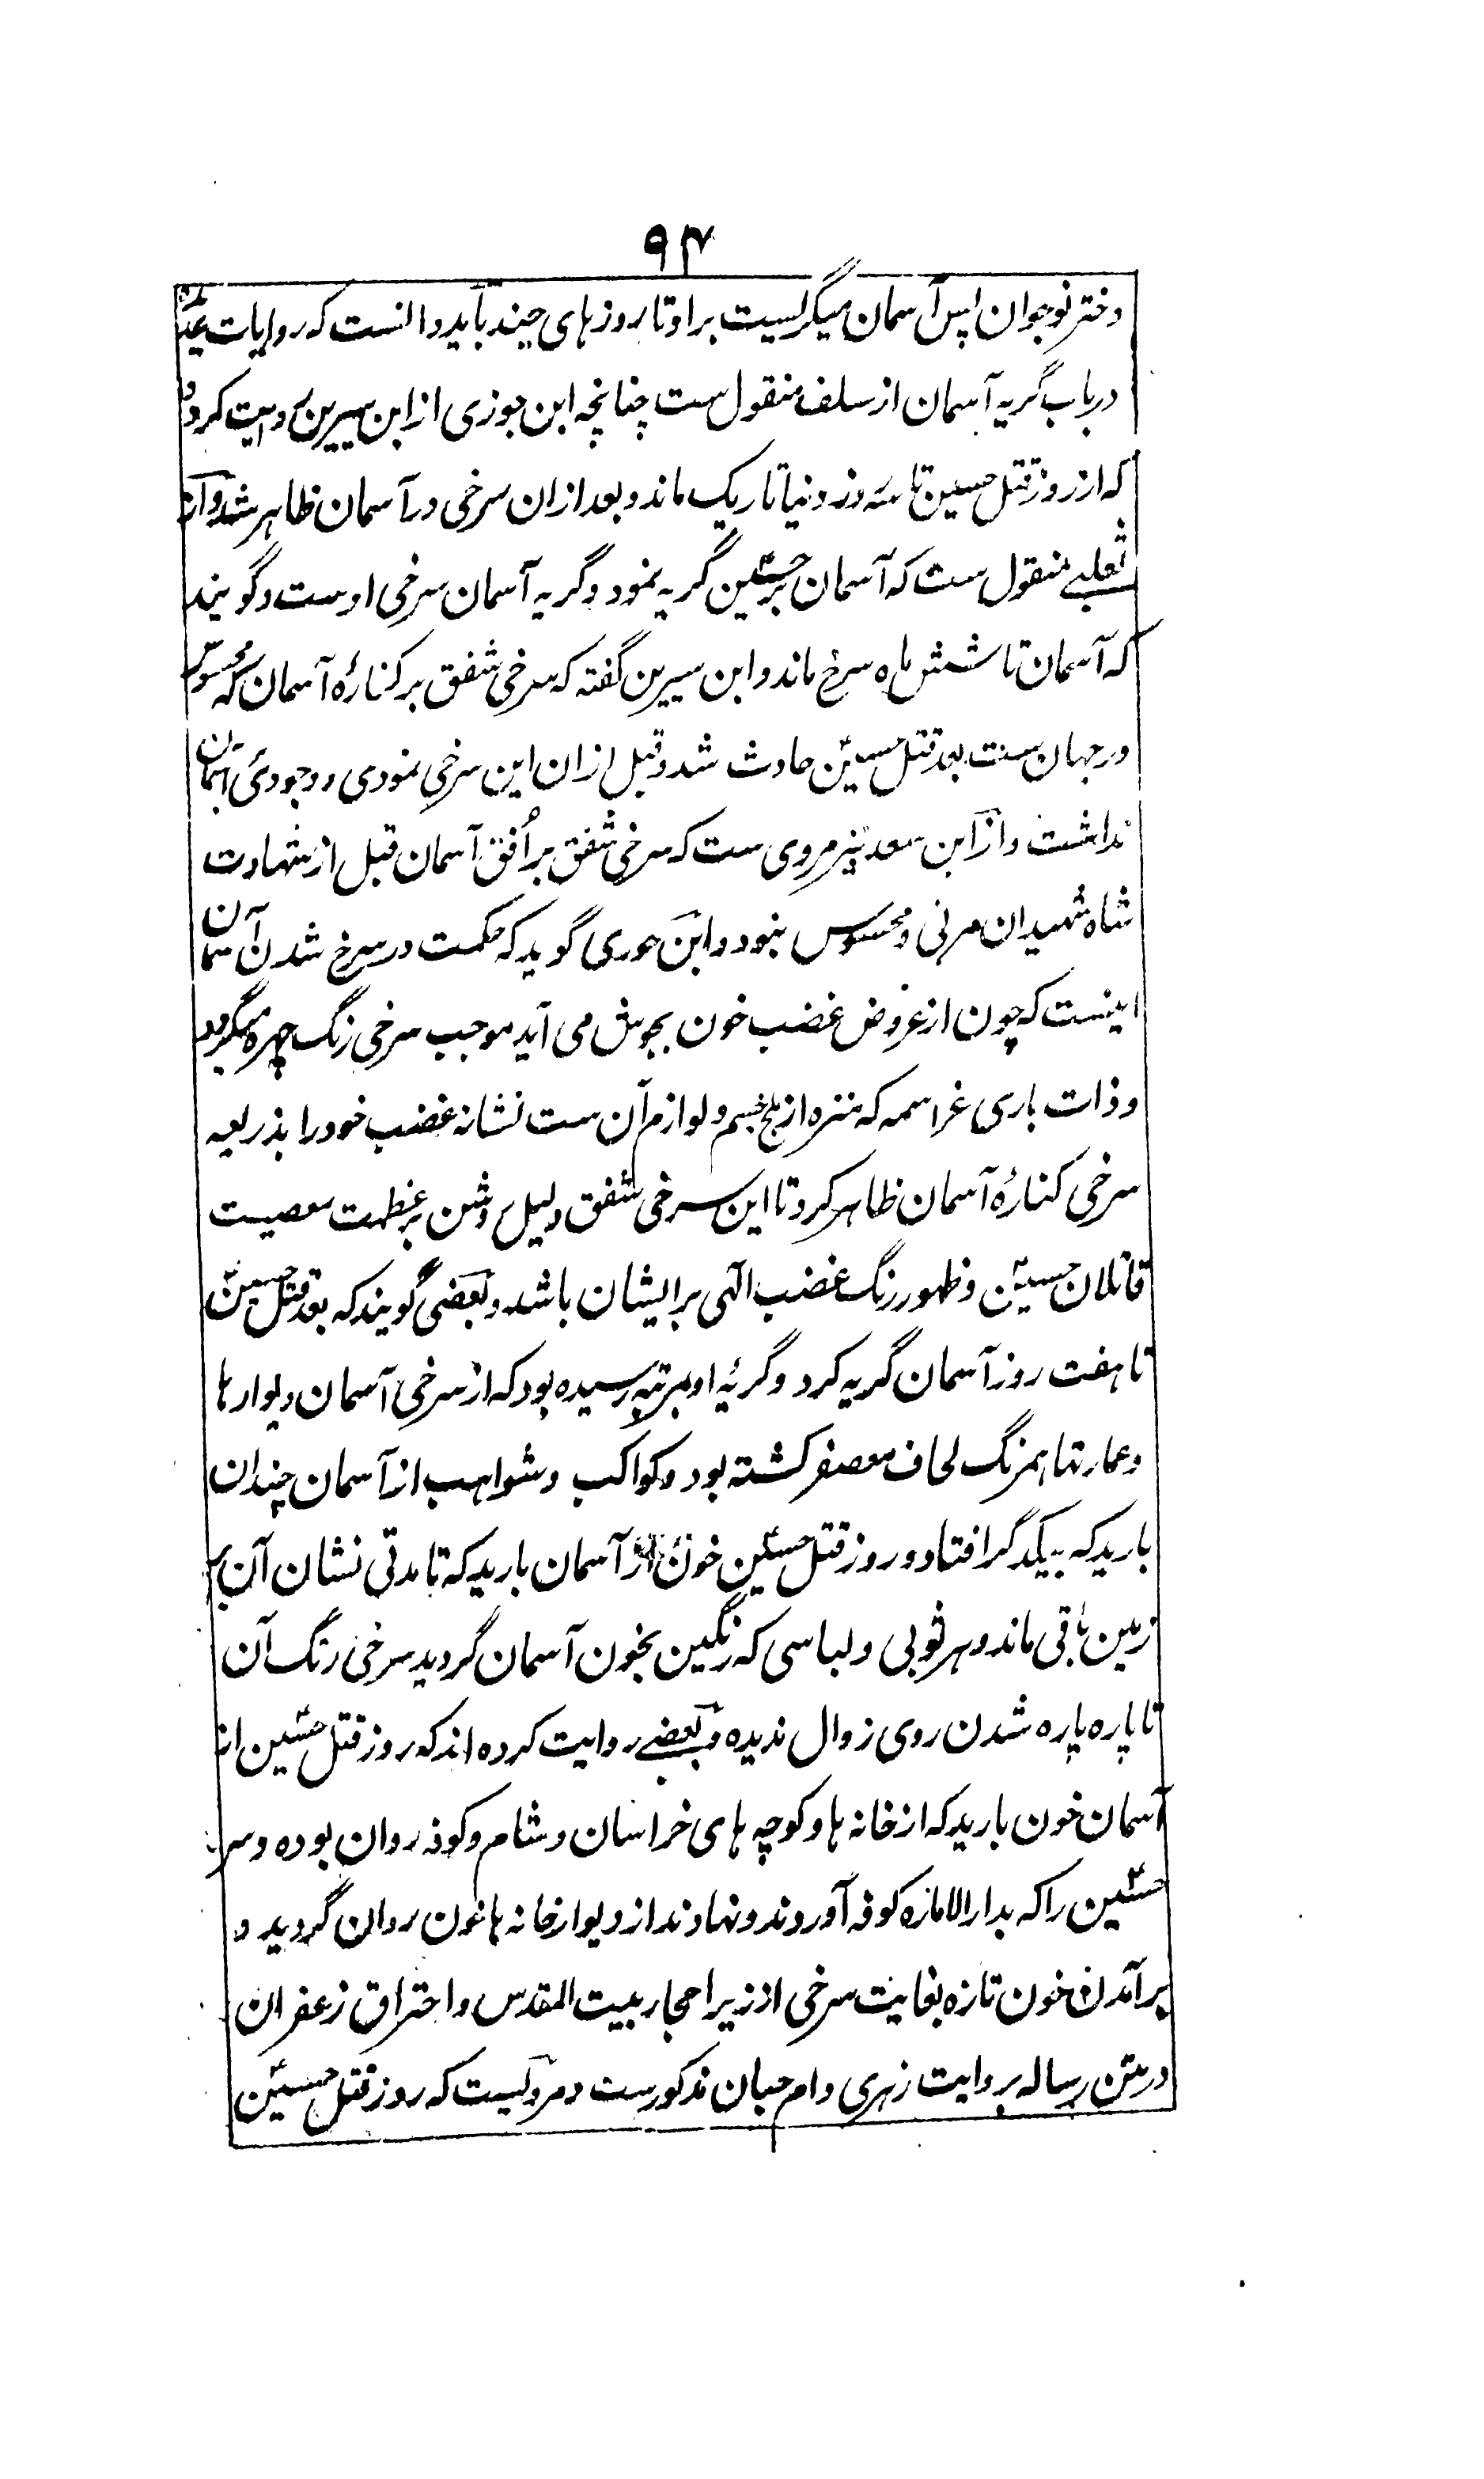 ۹۴
دختر نوجوان پس آسمان میگریست بر او تا روزهای چند باید دانست که روایات
در باب گریه آسمان از سلف منقول ست چنانچه ابن جوزی از ابن سیرین روایت کرده
که از روز قتل حسین تا سه روز دنیا تاریک ماند و بعد ازان سرخی در آسمان ظاهر شد و از
ثعلبے منقول ست که آسمان بر حسینؑ گریه نمود و گریه آسمان سرخی اوست و گویند
که آسمان تا شش ماه سرخ ماند و ابن سیرین گفته که سرخی شفق بر کنارهٔ آسمان که محسوس
در جهان ست بعد قتل حسینؑ حادث شد و قبل ازان این سرخی نمودی و وجودی بآسمان
نداشت و از ابن سعد نیز مروی ست که سرخی شفق بر اُفق آسمان قبل از شهادت
شاه شهیدان مرئی و محسوس نبود و ابن جوزی گوید که حکمت در سرخ شدن آسمان
اینست که چون از عروض غضب خون بجوش می آید موجب سرخی رنگ چهره میگردد
و ذات باری عز اسمه که منزه از جسم و لوازم آن ست نشانه غضب خود را بذریعه
سرخی کنارهٔ آسمان ظاهر کرد تا این سرخی شفق دلیل روشن بر عظمت معصیت
قاتلان حسینؑ و ظهور رنگ غضب الٓهی بر ایشان باشد و بعضی گویند که بعد قتل حسینؑ
تا هفت روز آسمان گریه کرد و گریهٔ او بمرتبه رسیده بود که از سرخی آسمان دیوارها
و عمارتها همرنگ لحاف معصفر گشته بود و کواکب و شواهب از آسمان چندان
بارید که بیکدگر افتاد و روز قتل حسینؑ خون از آسمان بارید که تا مدتی نشان آن بر
زمین باقی ماند و هر ثوبی و لباسی که رنگین بخون آسمان گردید سرخی رنگ آن
تا پاره پاره شدن روی زوال ندیده و بعضے روایت کرده اند که روز قتل حسینؑ از
آسمان خون بارید که از خانه ها و کوچه های خراسان و شام و کوفه روان بوده و سر
حسینؑ را که بدار الاماره کوفه آوردند و نهادند از دیوار خانه ها خون روان گردید و
برآمدن خون تازه بغایت سرخی از زیر احجار بیت المقدس و احتراق زعفران
در متن رساله بروایت زهری و ام حبان مذکورست و مرویست که روز قتل حسینؑ